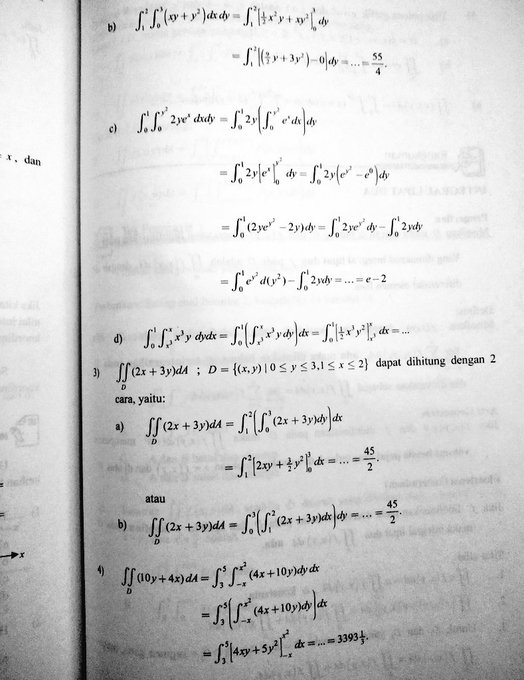 b) ∫₁² ∫₀³ (xy + y²) dx dy = ∫₁² [½x²y + xy²]₀³ dy
= ∫₁² [(9/2 y + 3y²) − 0] dy = ... = 55/4.
x, dan
c) ∫₀¹ ∫₀^{y²} 2ye^x dxdy = ∫₀¹ 2y(∫₀^{y²} e^x dx) dy
= ∫₀¹ 2y[e^x]₀^{y²} dy = ∫₀¹ 2y(e^{y²} − e⁰) dy
= ∫₀¹ (2ye^{y²} − 2y) dy = ∫₀¹ 2ye^{y²} dy − ∫₀¹ 2ydy
= ∫₀¹ e^{y²} d(y²) − ∫₀¹ 2ydy = ... = e − 2
d) ∫₀¹ ∫_{x³}^{x} x³y dydx = ∫₀¹ (∫_{x³}^{x} x³y dy) dx = ∫₀¹ [½x³y²]_{x³}^{x} dx = ...
3) ∬_D (2x + 3y)dA ; D = {(x, y) | 0 ≤ y ≤ 3, 1 ≤ x ≤ 2} dapat dihitung dengan 2
cara, yaitu:
a) ∬_D (2x + 3y)dA = ∫₁² (∫₀³ (2x + 3y)dy) dx
= ∫₁² [2xy + 3/2 y²]₀³ dx = ... = 45/2
atau
b) ∬_D (2x + 3y)dA = ∫₀³ (∫₁² (2x + 3y)dx) dy = ... = 45/2.
x
4) ∬_D (10y + 4x) dA = ∫₃⁵ ∫_{−x}^{x²} (4x + 10y) dy dx
= ∫₃⁵ (∫_{−x}^{x²} (4x + 10y)dy) dx
= ∫₃⁵ [4xy + 5y²]_{−x}^{x²} dx = ... = 3393⅓.